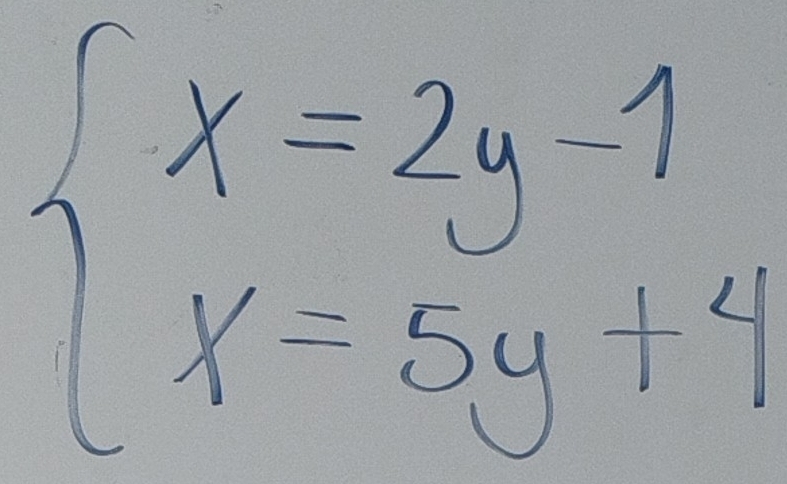 x = 2y - 1
x = 5y + 4